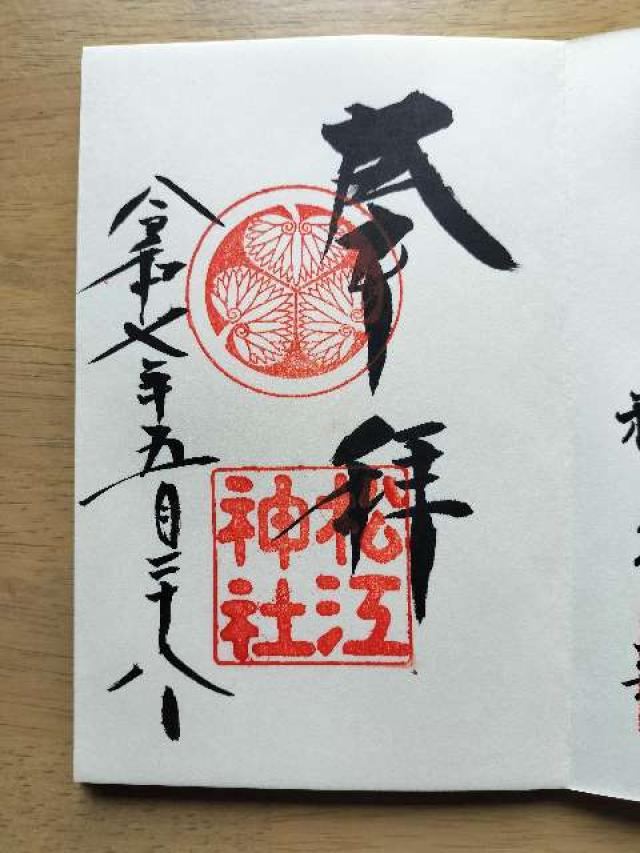 奉拝
松江
神社
令和七年五月二十八日